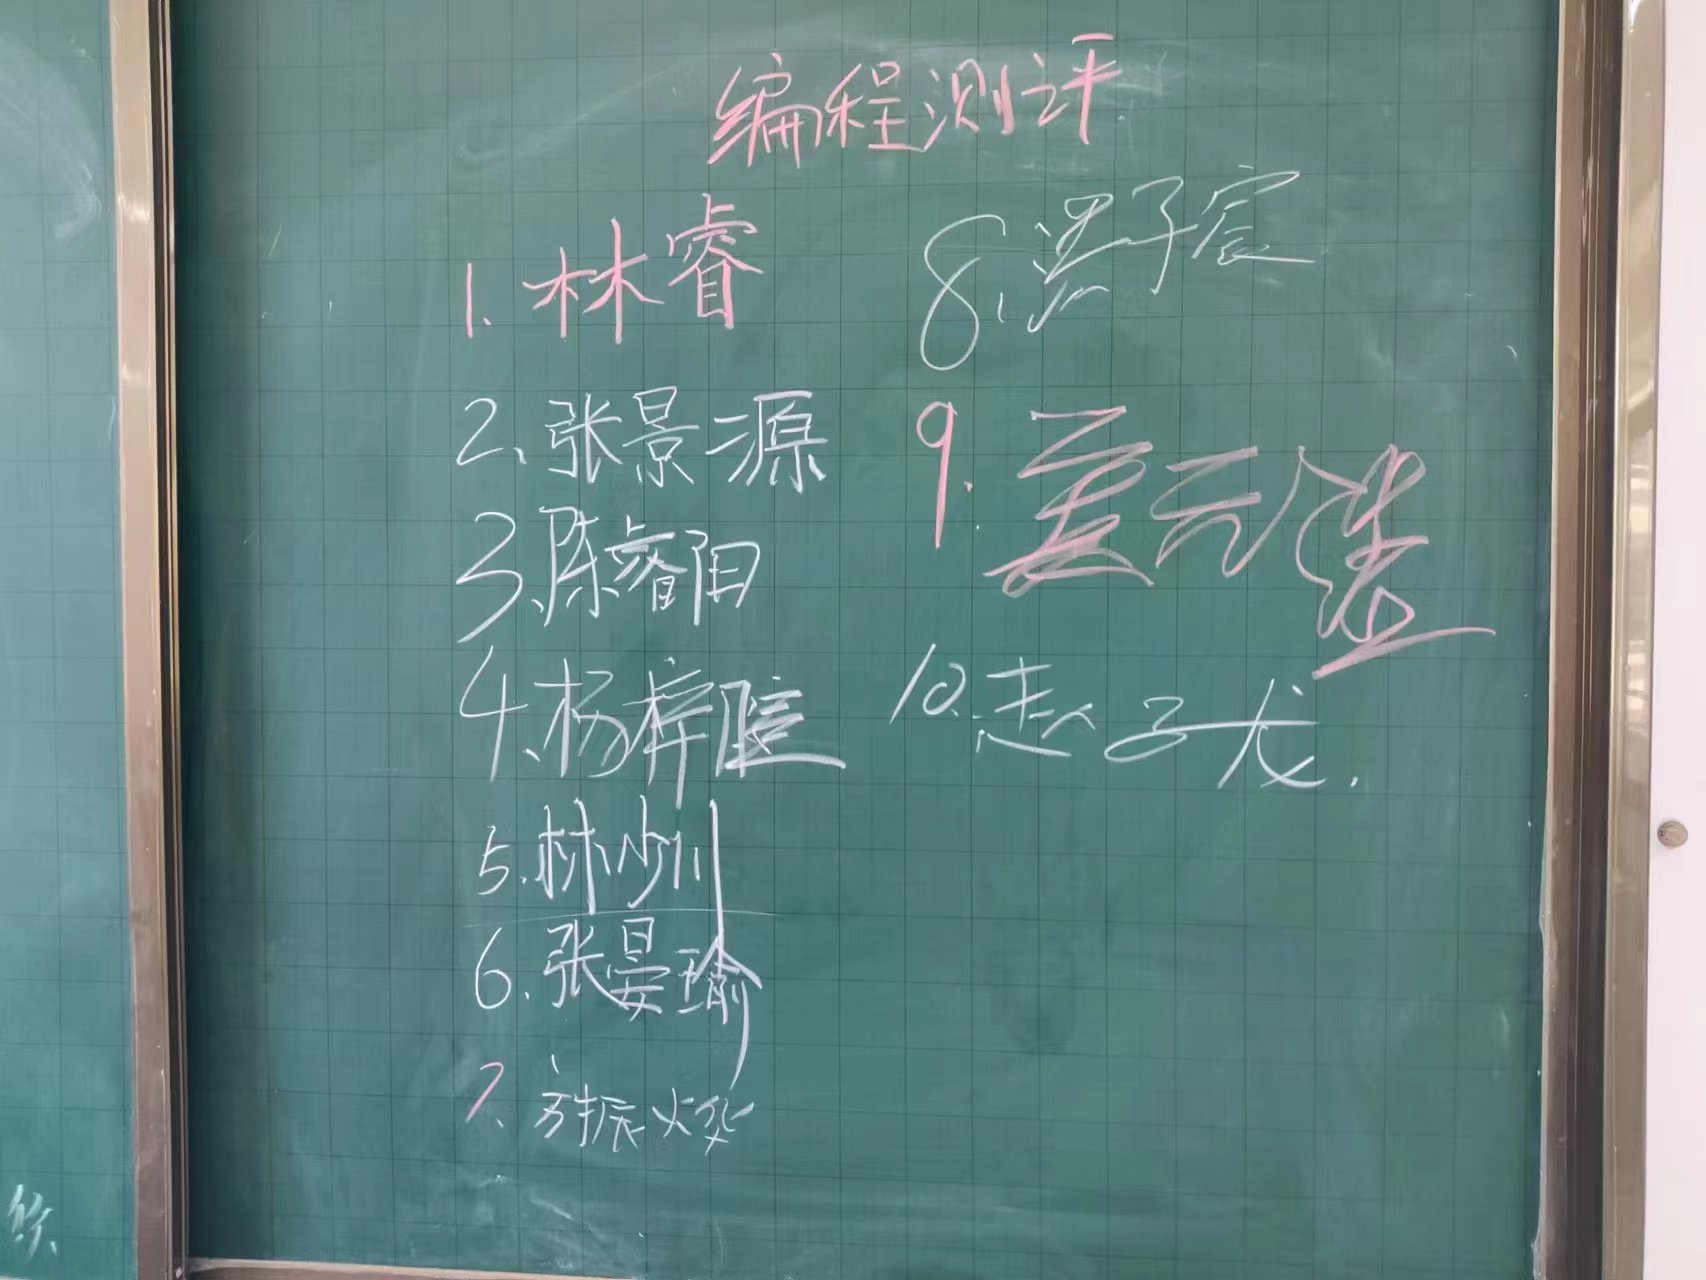 编程测评
1. 林睿
2、张景源
3、陈睿阳
4、杨梓暄
5. 林少川
6. 张晏瑜
7、方振烨
8、子宸
9. 元
10. 赵子龙.